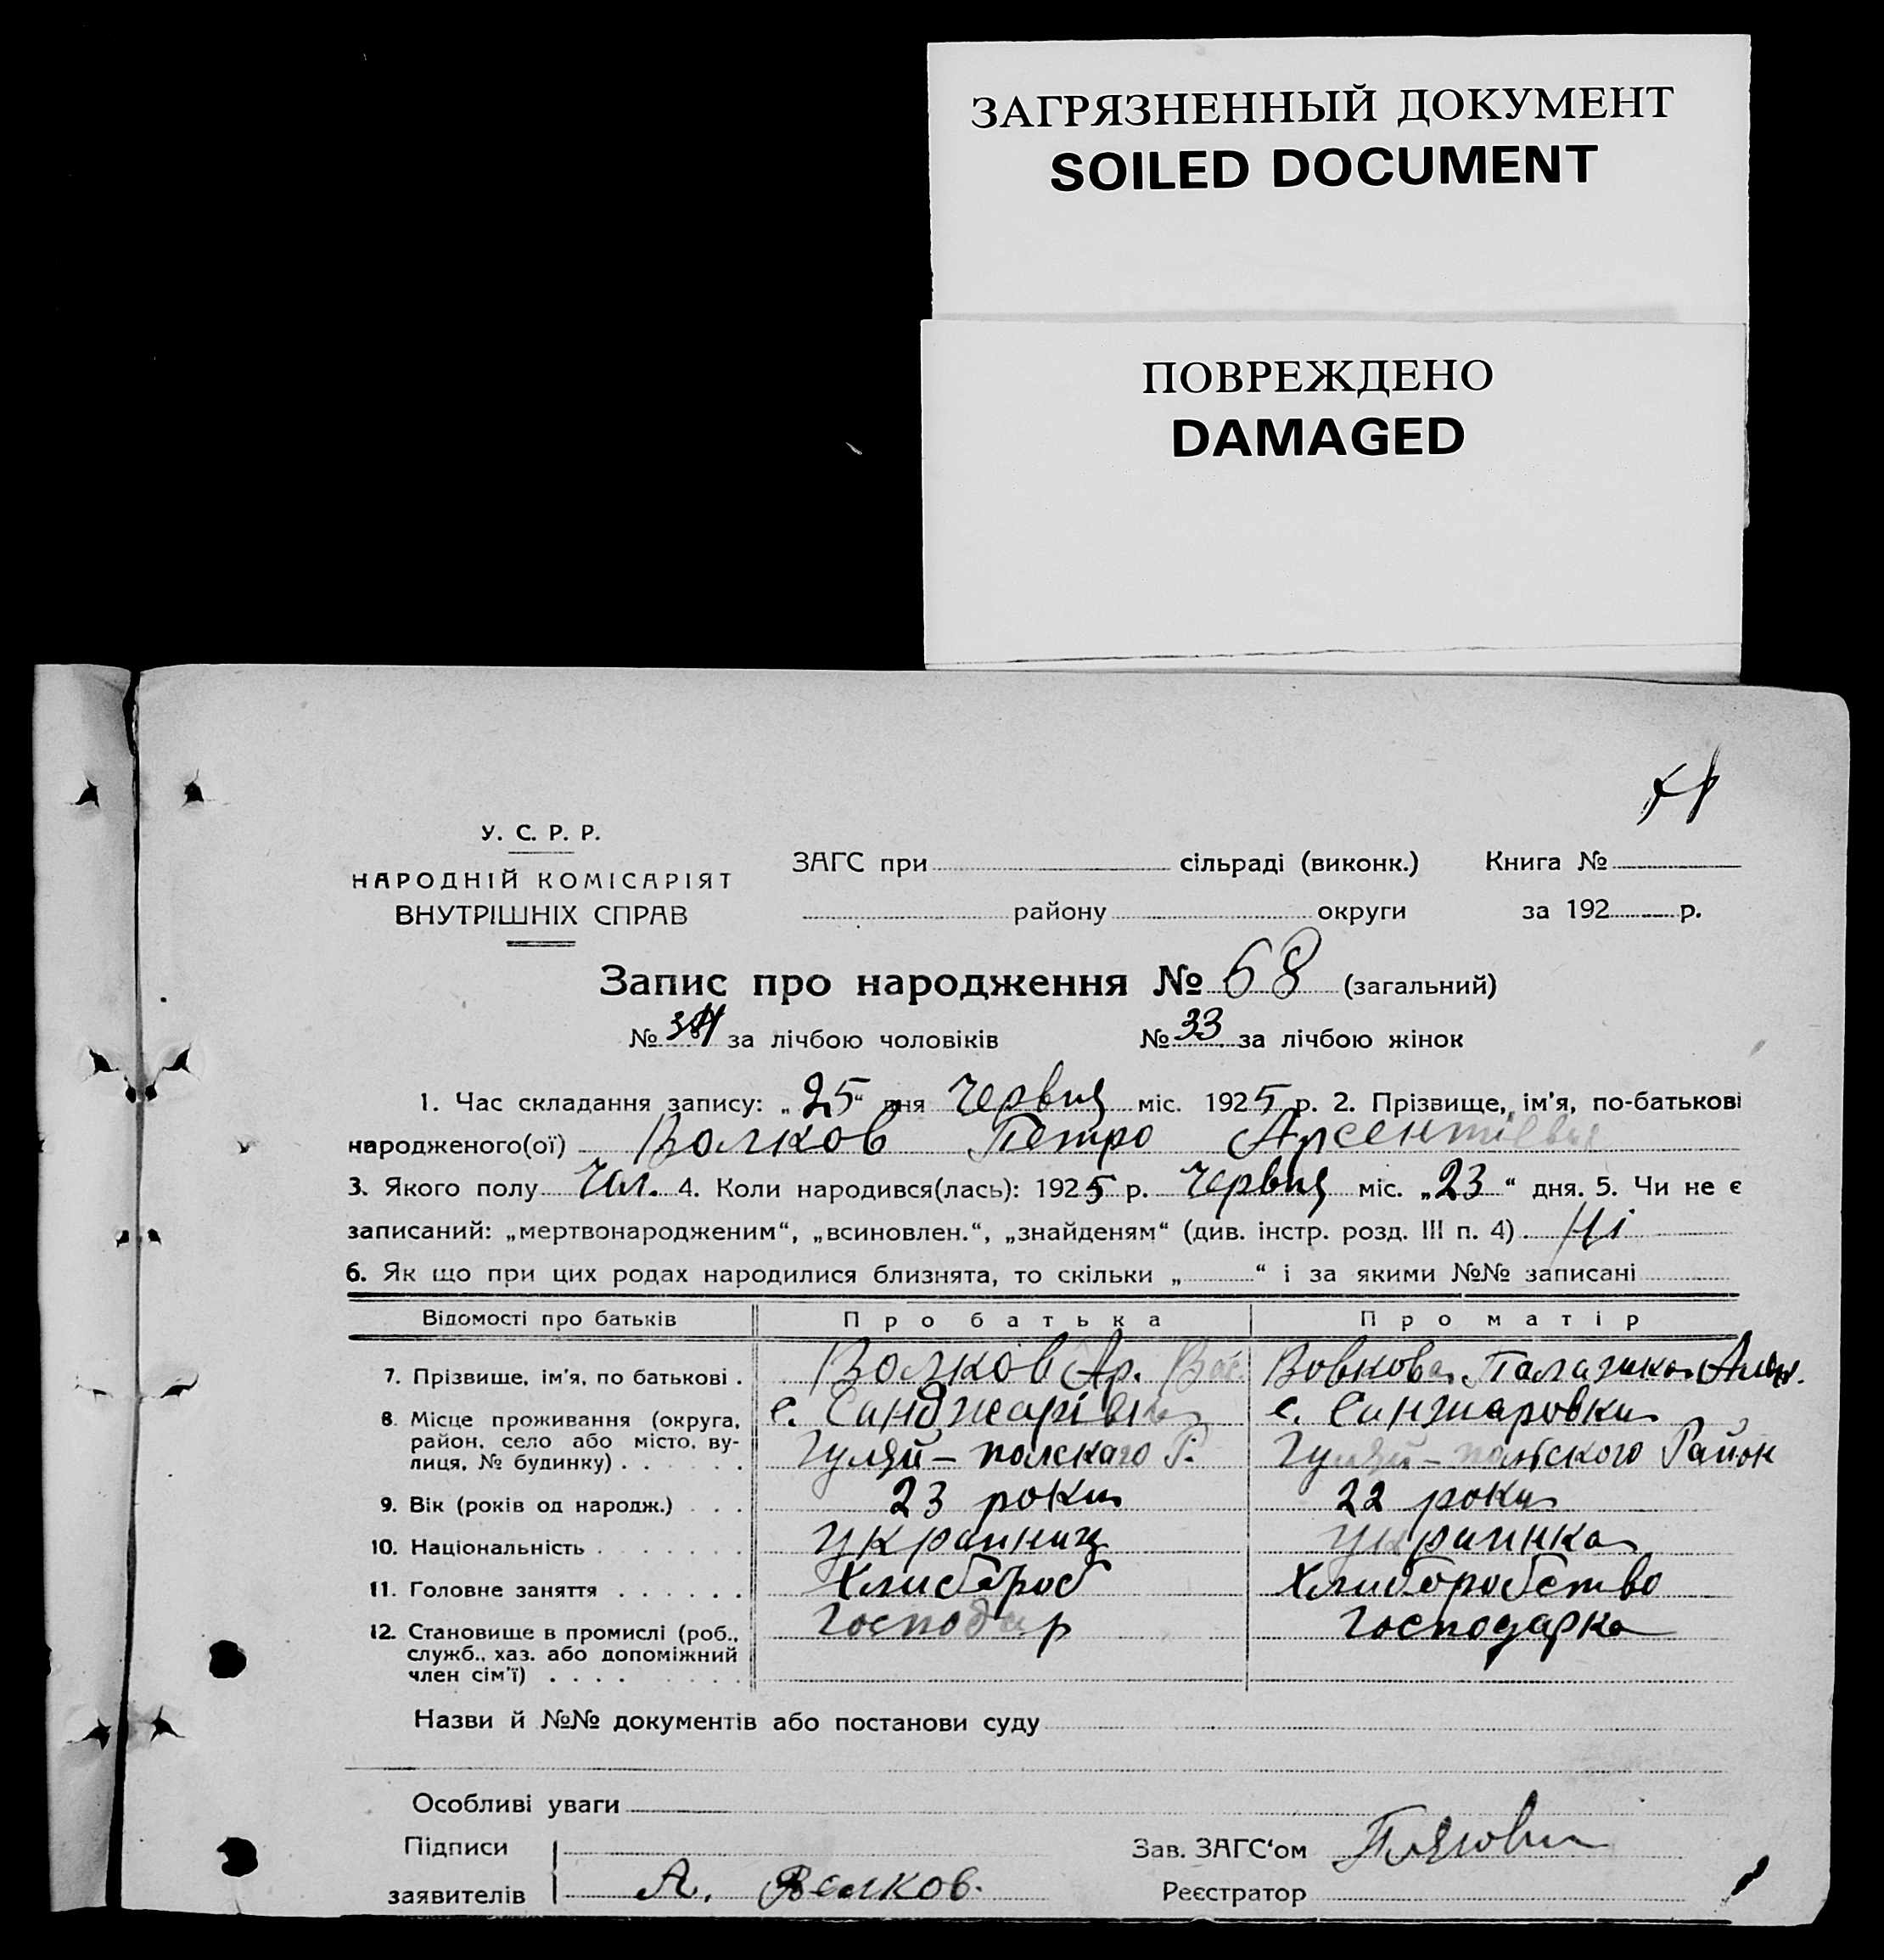 ЗАГРЯЗНЕННЫЙ ДОКУМЕНТ
SOILED DOCUMENT
ПОВРЕЖДЕНО
DAMAGED
У. С. Р. Р.
НАРОДНІЙ КОМІСАРІЯТ
ВНУТРІШНІХ СПРАВ
ЗАГС при сільраді (виконк.) Книга №
району округи за 192 р.
Запис про народження № 68 (загальний)
№ за лічбою чоловіків № 33 за лічбою жінок
1. Час складання запису: „25“ дня Червня міс. 1925 р. 2. Прізвище, ім'я, по-батькові
народженого(ої) Волков Петро Арсентіевич
3. Якого полу Чол. 4. Коли народився(лась): 1925 р. Червня міс. „23“ дня. 5. Чи не є
записаний: „мертвонародженим“, „всиновлен.“, „знайденям“ (див. інстр. розд. III п. 4) Ні
6. Як що при цих родах народилися близнята, то скільки „ “ і за якими №№ записані
Відомості про батьків Про батька Про матір
7. Прізвище, ім'я, по батькові . Волков Ар. Вас. Вовкова
8. Місце проживання (округа, с. Санджарівка с. Санжаровка
район, село або місто, ву- Гуляй-полскаго Р. Гуляй-польского Район
лиця, № будинку) . . . . . .
9. Вік (років од народж.) . . . 23 роки 22 роки
10. Національність . . . . . . . украиниц украинка
11. Головне заняття . . . . . . Хлибороб Хлиборобство
12. Становище в промислі (роб., Господар господарка
служб., хаз. або допоміжний
член сім'ї) . . . .
Назви й №№ документів або постанови суду
Особливі уваги
Підписи Зав. ЗАГС'ом
заявителів А. Волков. Реєстратор